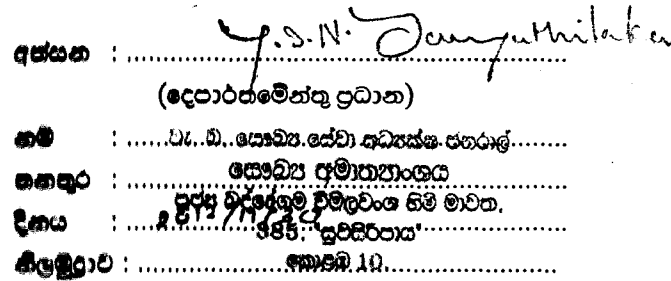 අත්සන :
(දෙපාර්තමේන්තු ප්‍රධාන)
නම : වැ. බ. සෞඛ්‍ය සේවා අධ්‍යක්ෂ ජනරාල්
තනතුර : සෞඛ්‍ය අමාත්‍යාංශය
පූජ්‍ය බද්දේගම විමලවංශ හිමි මාවත,
දිනය : 385, "සුවසිරිපාය"
නිලමුද්‍රාව : කොළඹ 10.